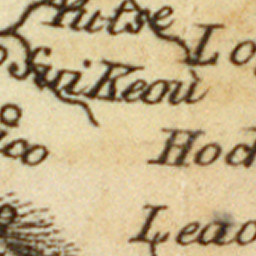 Yutse
Lo
Sui Keoù
ico
Hod
Leao